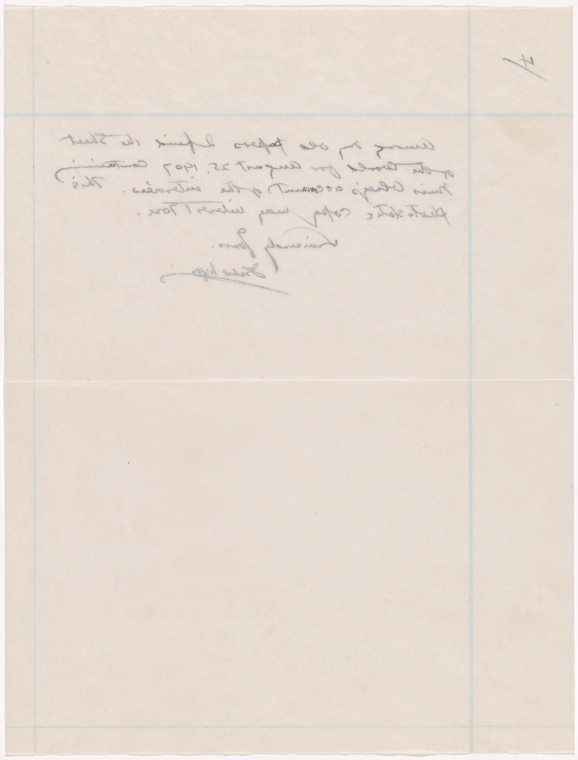 4/
Among my old papers I find the sheet
of the World for August 25, 1907 containing
Miss Cleag's account of the interview. This
photostatic copy may interest you.
Sincerely Yours.